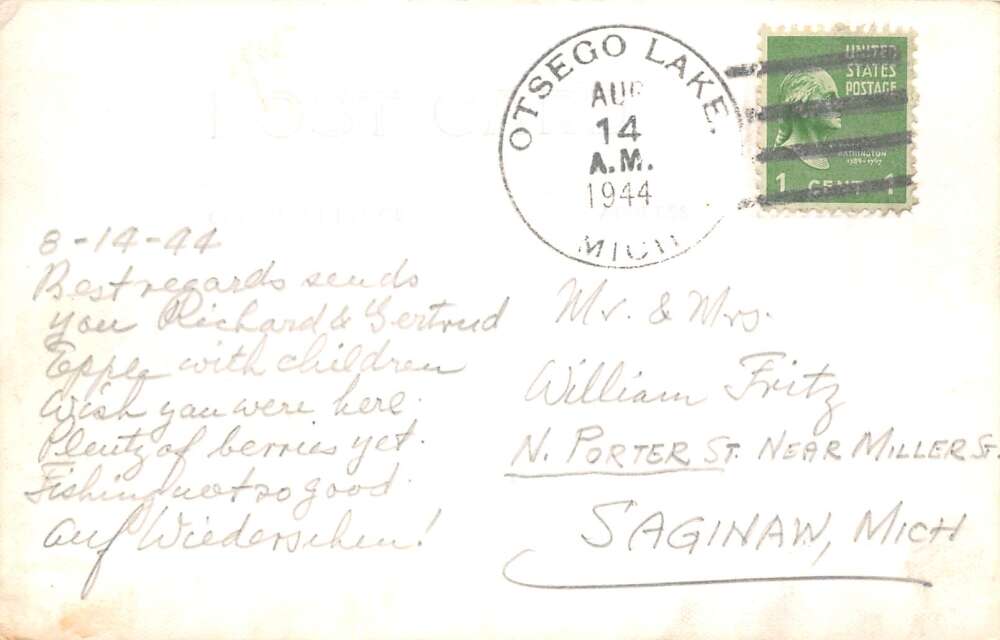 POST CARD
OTSEGO LAKE,
AUG
14
A.M.
1944
MICH
UNITED
STATES
POSTAGE
WASHINGTON
1789-1797
1 CENT 1
8-14-44
Best regards sends
you Richard & Gertrud
Epple with children
Wish you were here.
Plenty of berries yet.
Fishing not so good.
Auf Wiedersehen!
Mr. & Mrs.
William Fritz
N. PORTER ST. NEAR MILLER ST.
SAGINAW, MICH